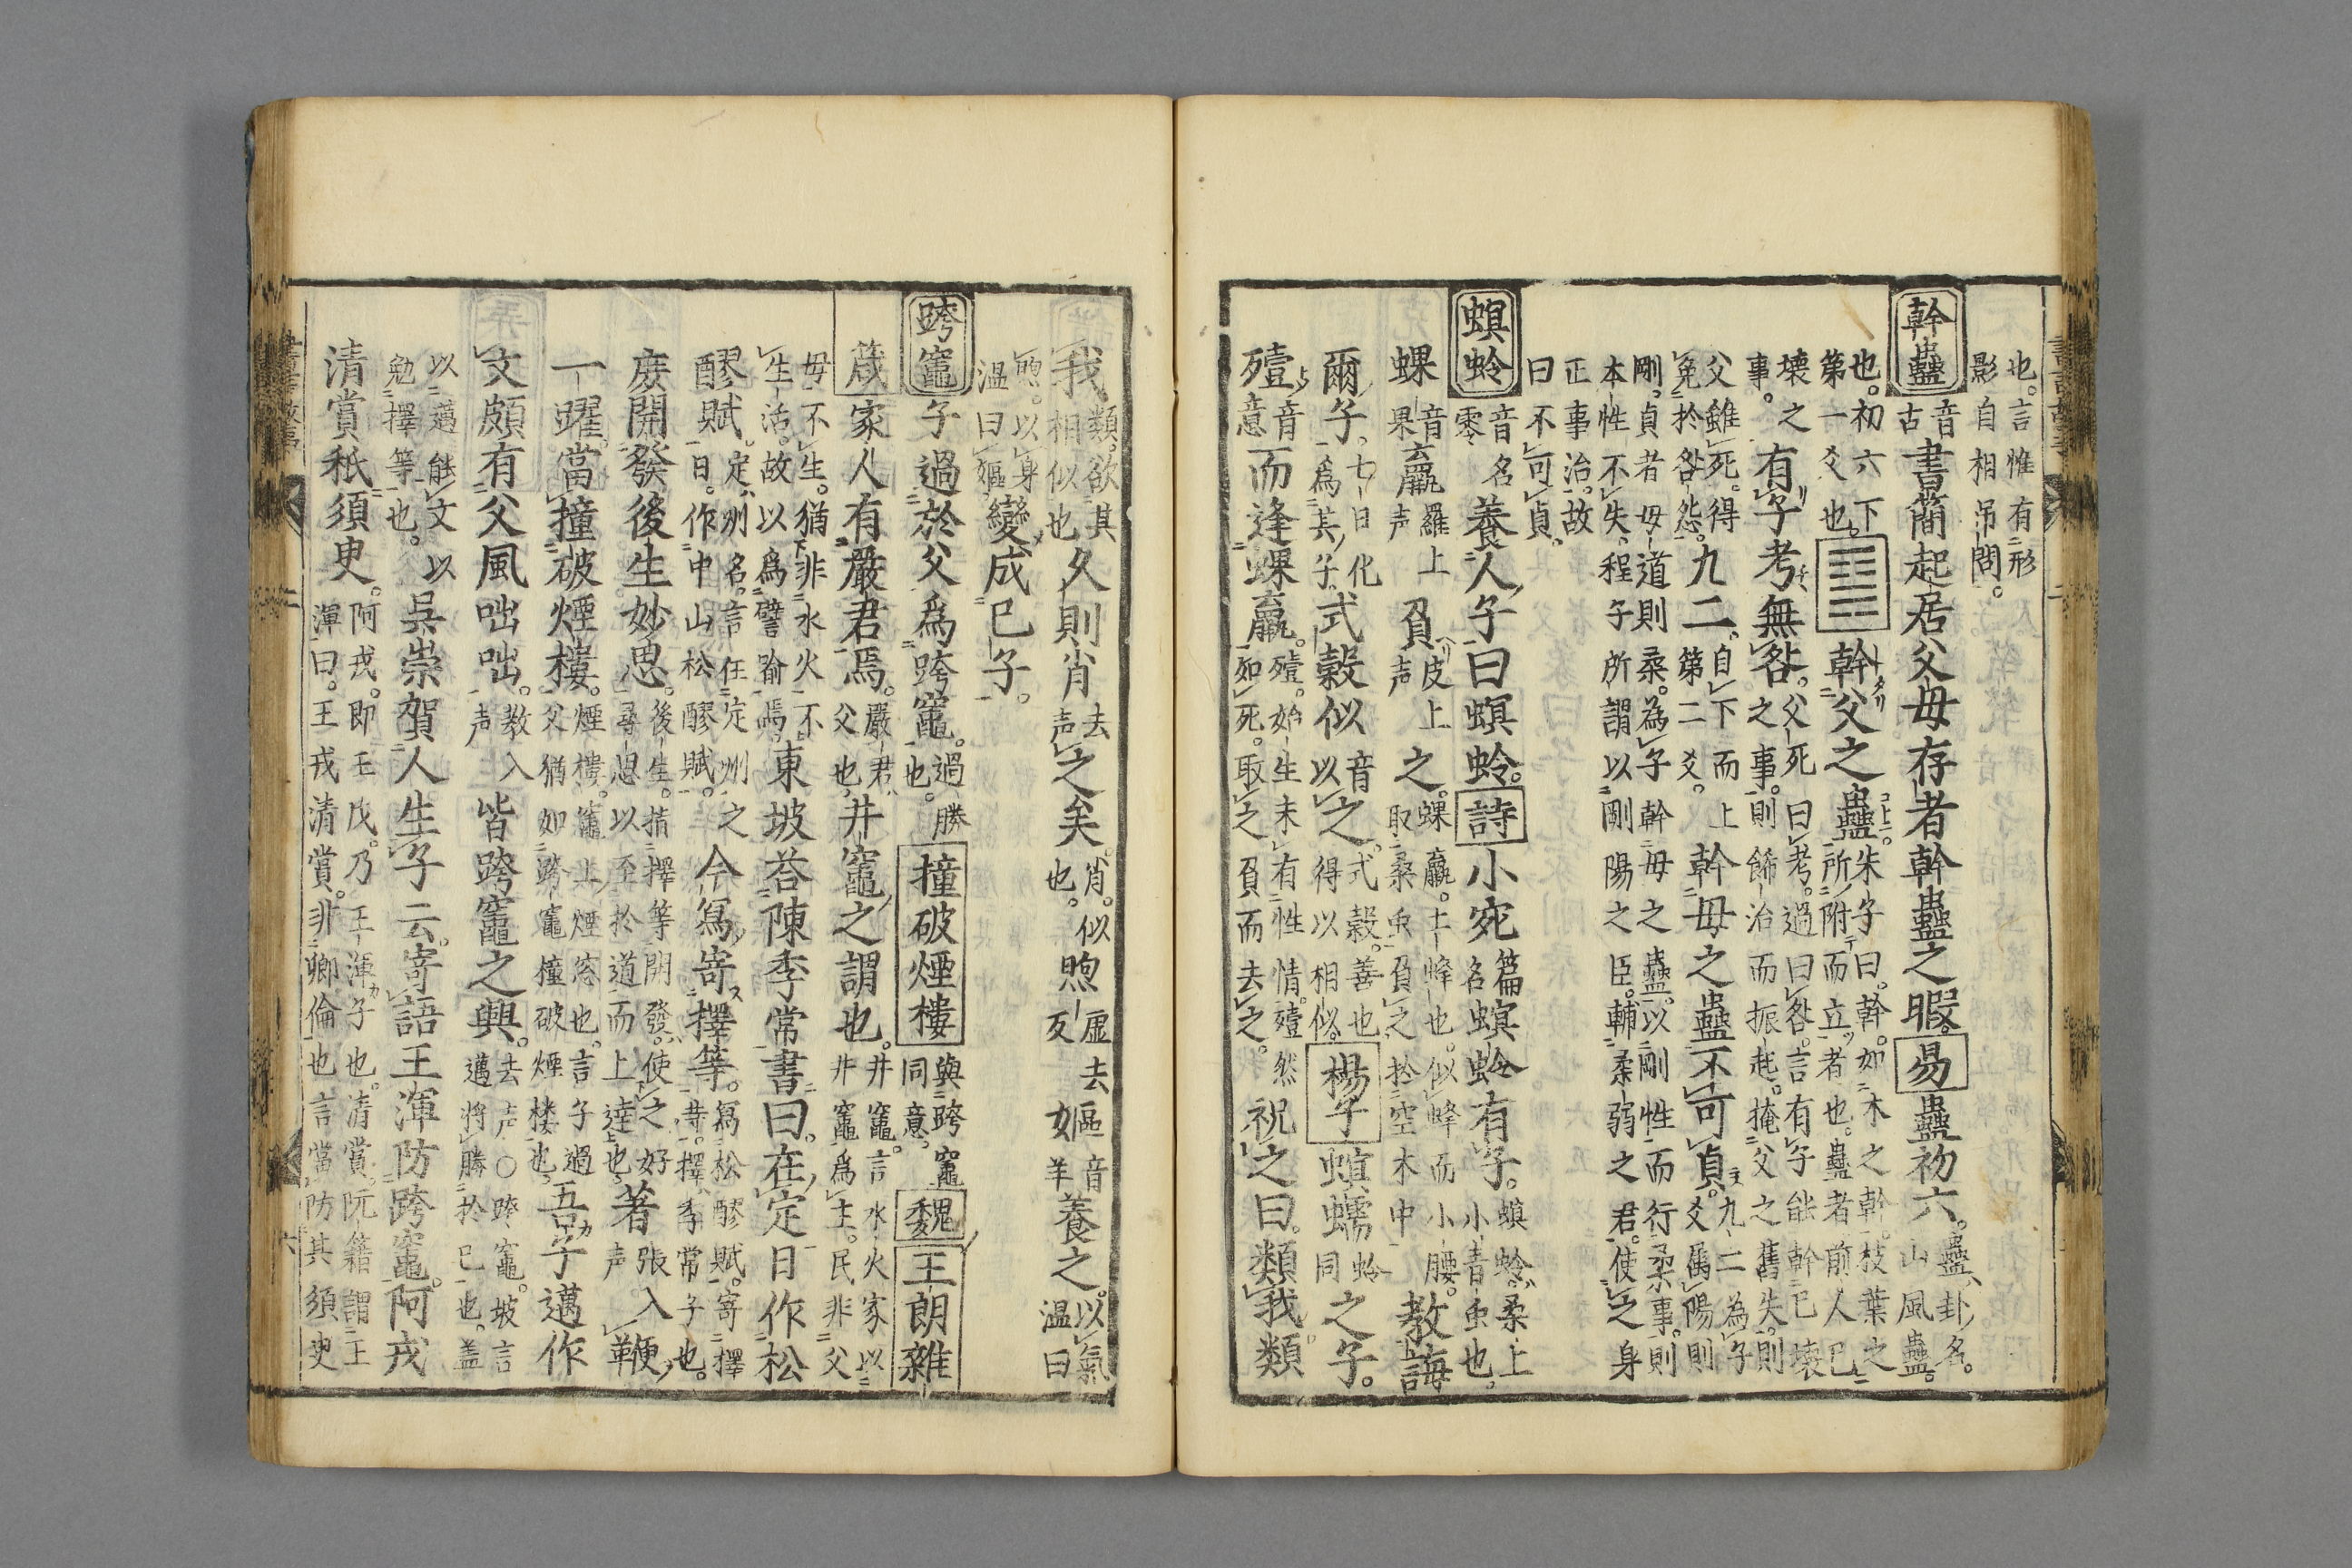 也。言惟有形
影自相吊問。
幹蠱
音古
書簡起居父母存者幹蠱之暇。易蠱初六。
蠱、卦名。
山風蠱。
也。初六下
第一爻也。
幹父之蠱。
朱子曰。幹。如木之幹。枝葉之
所附而立者也。蠱者前人已
壊之
事。
有子考無咎。
父死曰考。過曰咎。言有子能幹已壊
之事。則飾治而振起。掩父之舊失。則
父雖死。得
免於咎怨。
九二。
自下而上
第二爻。
幹母之蠱不可貞。
九二為子
爻属陽則
剛。貞者母道則柔。為子幹母之蠱。以剛性而行柔事。則
本性不失。程子所謂以剛陽之臣。輔柔弱之君。使之身
正事治。故
曰不可貞。
螟蛉
音名
零
養人子曰螟蛉。詩小宛
篇
名
螟蛉有子。
螟蛉。桑上
小青虫也。
蜾
音
果
蠃
羅上
声
負
皮上
声
之。
蜾蠃。土蜂也。似蜂而小腰。
取桑虫負之於空木中
教誨
爾子。
七日化
為其子
式穀似
音
以
之。
式穀。善也
得以相似。
楊子螟蠕
蛉
同
之子。
殪
音
意
而逢蜾蠃。
殪。始生未有性情。殪然
如死。取之負而去之。
祝之曰。類我類
我
類。欲其
相似也
久則肖
去
声
之矣
肖。似
也。
煦
虚去
反
嫗
音
羊
養之。
以氣
温曰
煦。以身
温曰嫗
變成已子。
跨竈
子過於父爲跨竈。
過、勝
也。
撞破煙樓
與跨竈
同意。
魏王朗雜
箴家人有嚴君焉。
嚴君、
父也、
井竈之謂也。
井竈。言水火家以
井竈爲主。民非父
母不生。猶非水火不
生活。故以爲譬喻焉。
東坡荅陳季常書曰。在定日作松
醪賦。
定、州名。言在定州之
日。作中山松醪賦。
今寫寄擇等。
寫松醪賦。寄擇
等。擇、季常子也。
庻開發後生妙思。
後生。指擇等開發。使之好
尋思以至於道而上達也。
著
張入
声
鞭
一躍。當撞破煙樓。
煙樓。竈上煙窓也。言子過
父猶如跨竈撞破煙樓也。
吾子邁作
文頗有父風咄咄。
教入
声
皆跨竈之興。
去声○跨竈。坡言
邁將勝於已也。蓋
以邁能文以
勉擇等也。
吳崇賀人生子云。寄語王渾防跨竈。阿戎
清賞秖須臾。
阿戎。即王戎。乃王渾子也。清賞。阮籍謂王
渾曰。王戎清賞。非卿倫也言當防其須臾